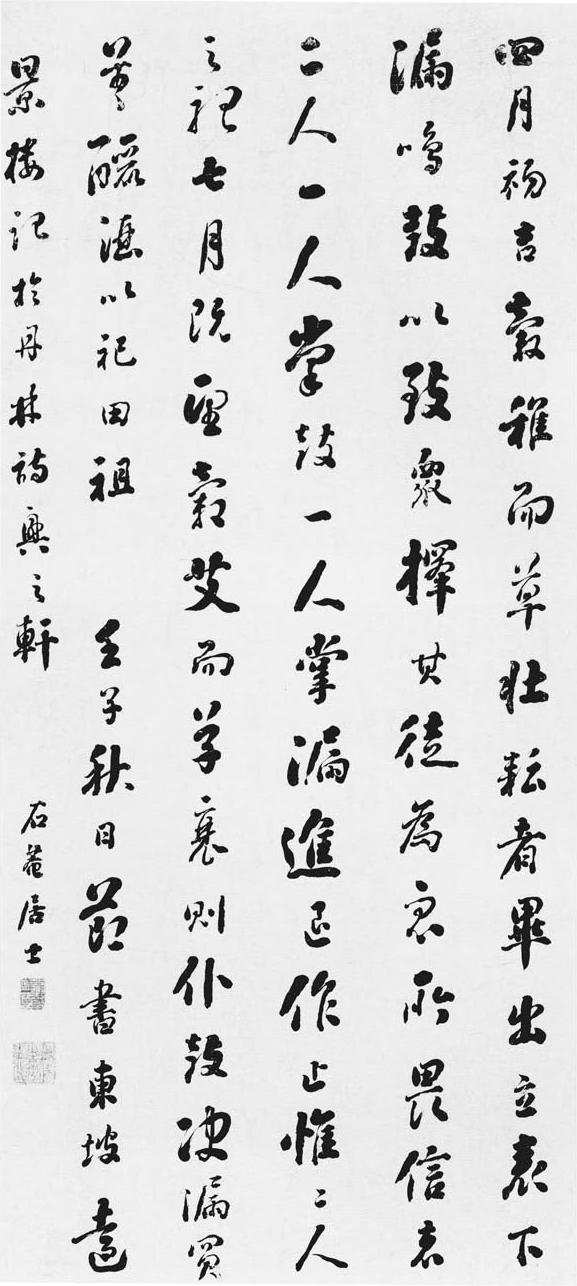 四月初吉穀稚而草壯耘者畢出立表下
漏鳴鼓以致眾擇其徒為眾所畏信者
二人一人掌鼓一人掌漏進退作止惟二人
之聽七月既望穀艾而草衰則仆鼓决漏買
羊釃酒以祀田祖 壬子秋日節書東坡遠
景樓記於丹林詩興之軒 石菴居士